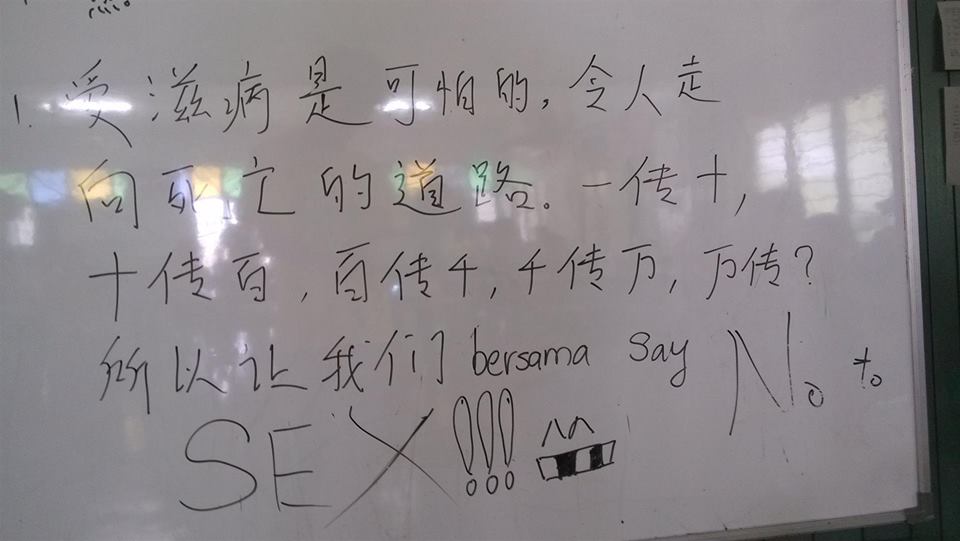 1. 受滋病是可怕的，令人走
向死亡的道路。一传十，
十传百，百传千，千传万，万传？
所以让我们 bersama say No to
SEX!!!